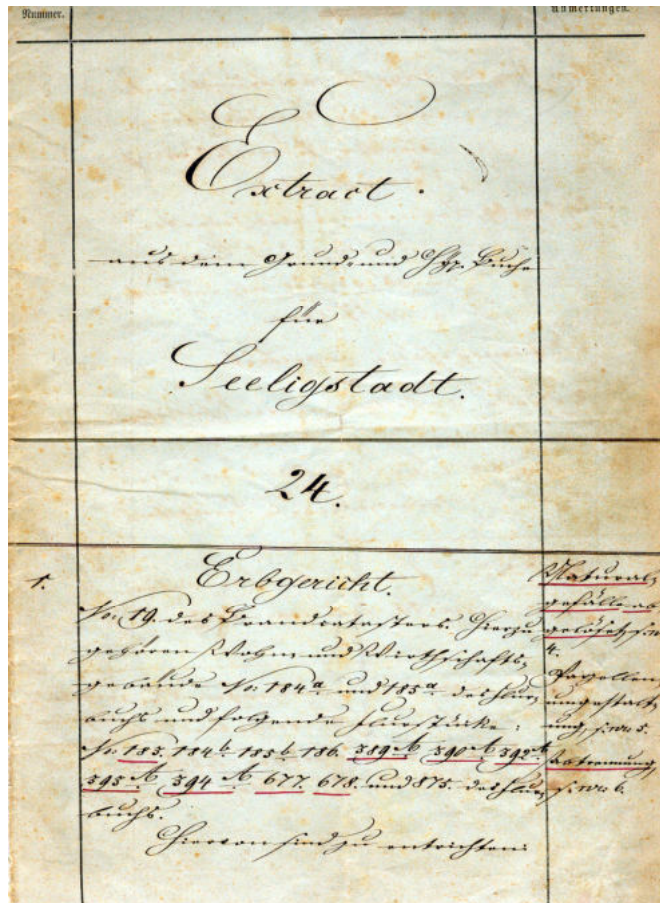 Nummer.
Anmerkungen.
Extract.
aus dem Grund- und Hyp. Buche
für
Seeligstadt.
24.
1.
Erbgericht.
No: 19. des Brandcatasters. Hierzu
gehören Wohn und Wirthschafts-
gebäude No: 184a. und 185a. des Flur-
buchs und folgende Flurstücke:
No: 183. 184b. 185b. 186. 389A. 390A. 392A.
393 A. 394 A. 677. 678. und 875. des Flur-
buchs.
Hiervon sind zu entrichten:
Natural-
gefälle ab
gelöset, s. No
4.
Parzellen-
umgestalt-
ung, s. No 5.
Abtrennung,
s. No 6.